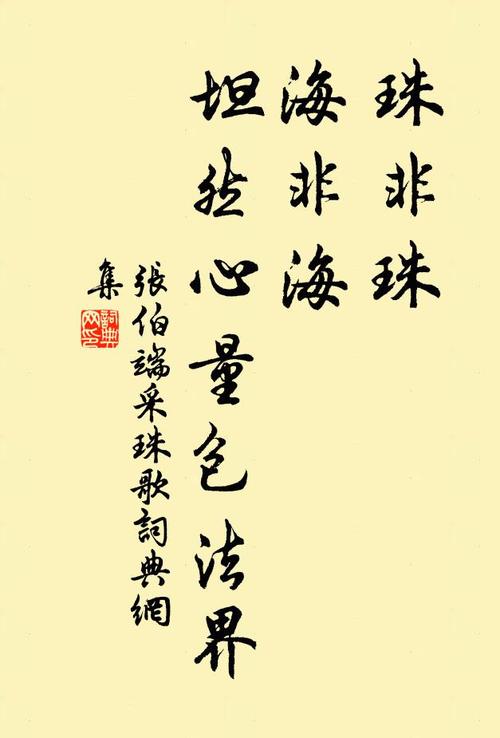 珠非珠
海非海
坦然心量包法界
張伯端采珠歌詞典網
集
詞典网印